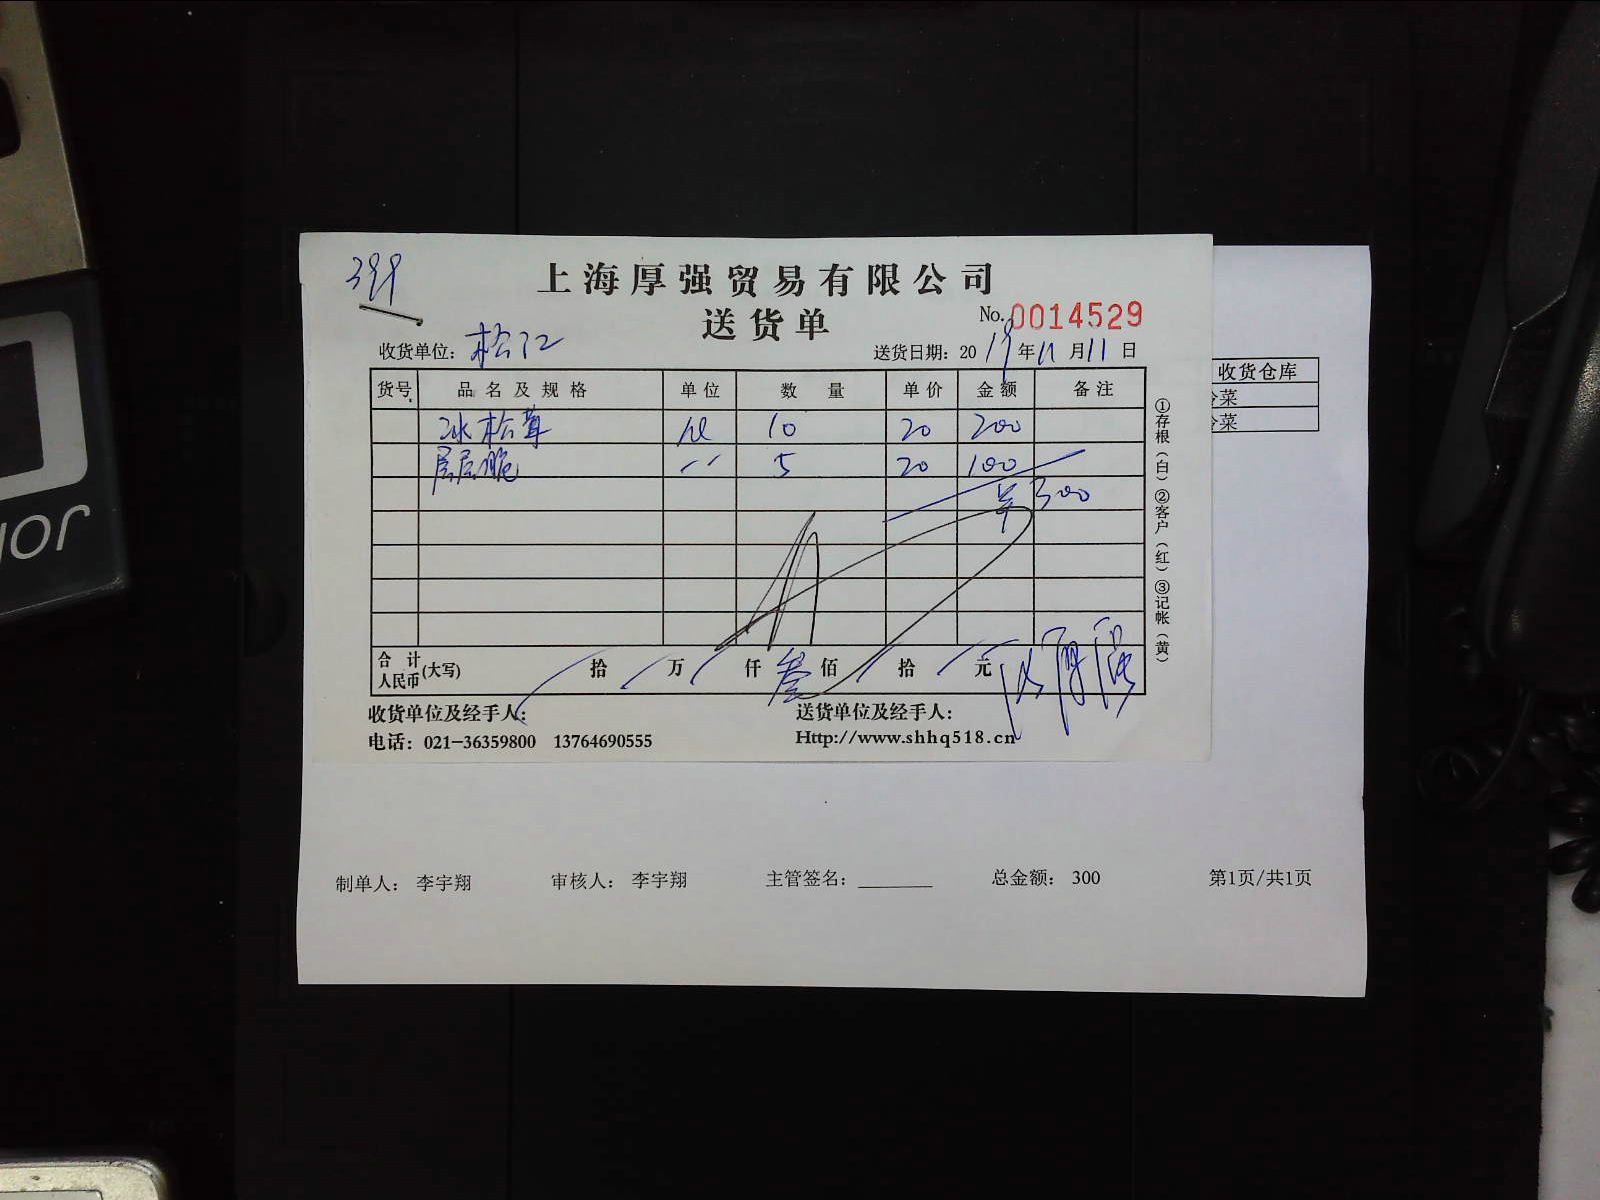 399
上海厚强贸易有限公司
送货单
No.0014529
收货单位：松江
送货日期：2019年11月11日
货号 品名及规格 单位 数量 单价 金额 备注
冰松茸 10 20 200
层层脆 〃 5 20 100
300
合计人民币(大写) 拾 万 仟 叁佰 拾 元
收货单位及经手人：
送货单位及经手人：
电话：021-36359800 13764690555
Http://www.shhq518.cn
①存根（白）②客户（红）③记帐（黄）
收货仓库
菜
菜
制单人： 李宇翔 审核人： 李宇翔 主管签名： 总金额： 300 第1页/共1页